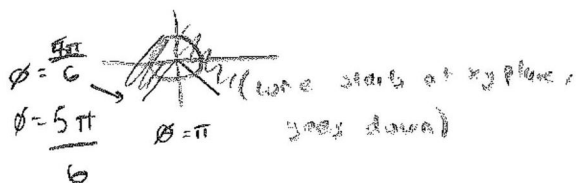 φ = 5π/6
φ = 5π/6
φ = π
(cone starts at xy plane,
goes down)